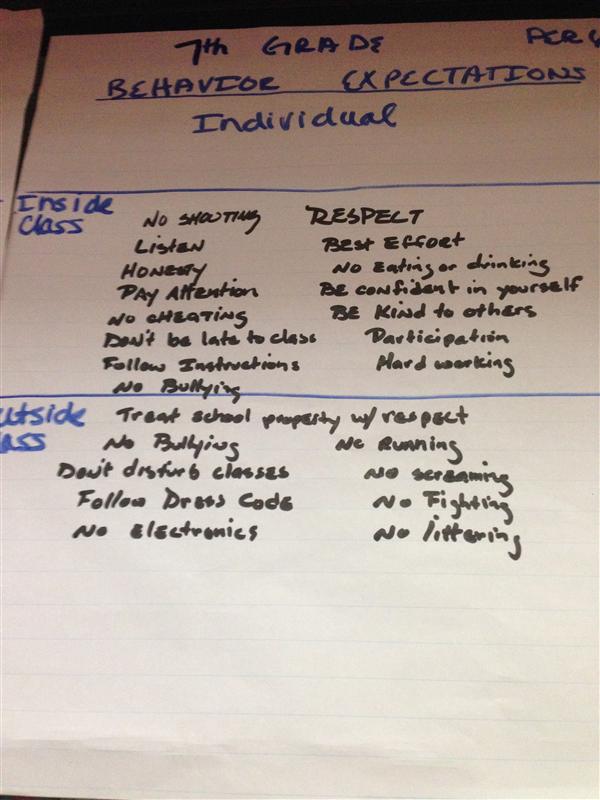 7th GRADE PER
BEHAVIOR EXPECTATIONS
Individual
Inside
Class
NO SHOUTING RESPECT
Listen Best Effort
Honesty No Eating or drinking
Pay Attention Be confident in yourself
No cheating Be Kind to others
Don't be late to class Participation
Follow Instructions Hard working
No Bullying
utside Treat school property w/ respect
lass No Bullying No Running
Don't disturb classes No screaming
Follow Dress Code No Fighting
No Electronics No littering